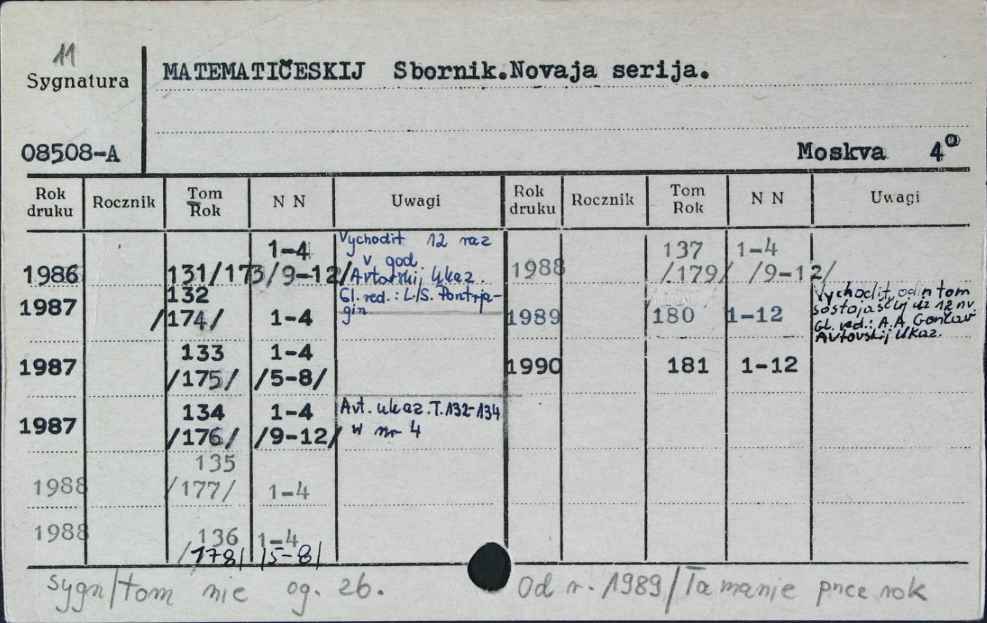 11
Sygnatura
MATEMATIČESKIJ Sbornik.Novaja serija.
08508-A
Moskva 4°
Rok druku Rocznik Tom Rok N N Uwagi Rok druku Rocznik Tom Rok N N Uwagi
1986 131/173/9-12/ 1-4 Vychodit 12 raz
v god
Avtorskij Ukaz.
1987 132 /174/ 1-4 Gl. red.: L.S. Pontrja-
gin
1987 133 /175/ 1-4 /5-8/
1987 134 /176/ 1-4 /9-12/ Avt. ukaz. T. 132-134
w nr 4
1988 135 /177/ 1-4
1988 136 /178/ 1-4 /5-8/
1988 137 /179/ 1-4 /9-12/
1989 180 1-12 Vychodit, odin tom
sostojaščij iz 12 nv
Gl. red.: A.A. Gončar
Avtorskij Ukaz.
1990 181 1-12
sygn/tom nie og. zb.
Od r. 1989/ rok